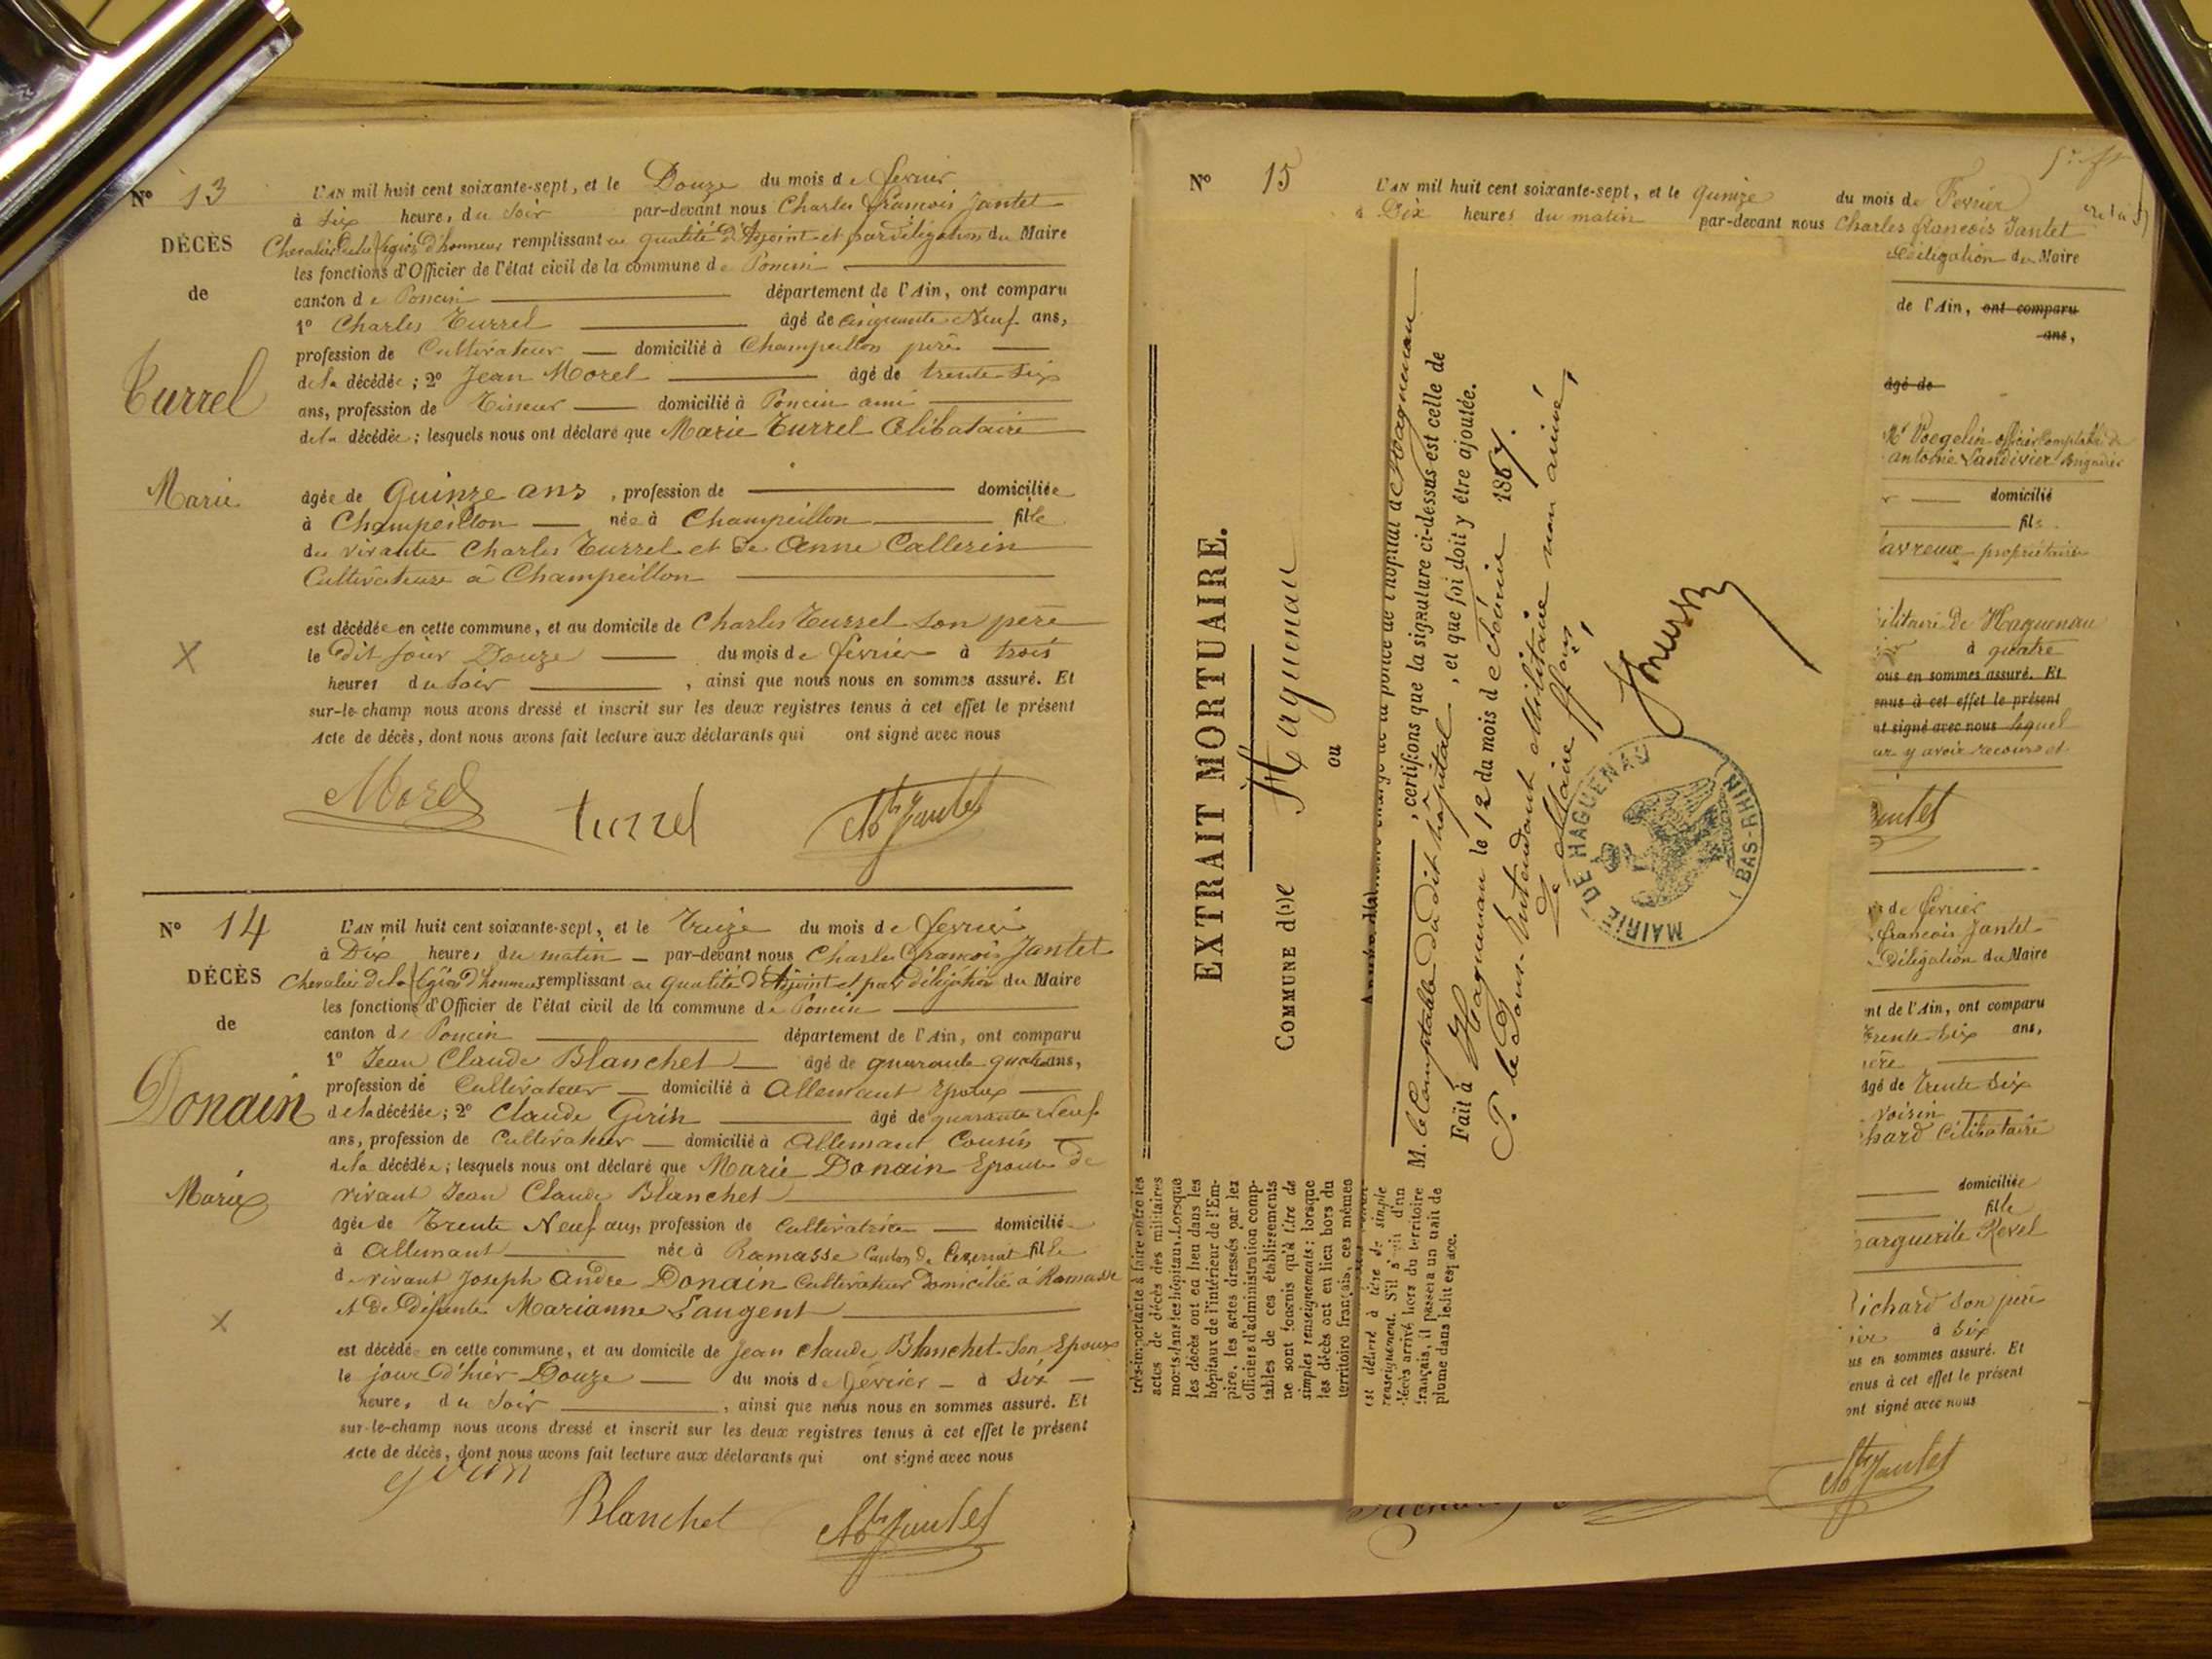 N° 13
L'AN mil huit cent soixante-sept, et le Douze du mois de fevrier
à six heures du soir par-devant nous Charles francois Jantet
DÉCÈS
Chevalier de la Légion d'honneur remplissant en qualité d'Adjoint et par délégation du Maire
les fonctions d'Officier de l'état civil de la commune de Poncin
de
canton de Poncin département de l'Ain, ont comparu
1° Charles Turrel âgé de cinquante Neuf ans,
profession de Cultivateur domicilié à Champeillon père
Turrel
de la décédée ; 2° Jean Morel âgé de trente six
ans, profession de Tisseur domicilié à Poncin ami
de la décédée ; lesquels nous ont déclaré que Marie Turrel Célibataire
Marie
âgée de Quinze ans , profession de domiciliée
à Champeillon née à Champeillon fille
des vivants Charles Turrel et de Anne Callerin
Cultivateurs à Champeillon
est décédée en cette commune, et au domicile de Charles Turrel son père
X
le dit jour Douze du mois de février à trois
heures du soir , ainsi que nous nous en sommes assuré. Et
sur-le-champ nous avons dressé et inscrit sur les deux registres tenus à cet effet le présent
Acte de décès, dont nous avons fait lecture aux déclarants qui ont signé avec nous
Morel turrel Jantet
N° 14
L'AN mil huit cent soixante-sept, et le Treize du mois de fevrier
à Dix heures du matin par-devant nous Charles francois Jantet
DÉCÈS
Chevalier de la Légion d'honneur remplissant en qualité d'Adjoint et par délégation du Maire
les fonctions d'Officier de l'état civil de la commune de Poncin
de
canton de Poncin département de l'Ain, ont comparu
1° Jean Claude Blanchet âgé de quarante quatre ans,
profession de Cultivateur domicilié à Allemant Epoux
Donain
de la décédée ; 2° Claude Girin âgé de quarante Neuf
ans, profession de Cultivateur domicilié à Allemant Cousin
de la décédée ; lesquels nous ont déclaré que Marie Donain Epouse de
Marie
vivant Jean Claude Blanchet
âgée de Trente Neuf ans, profession de Cultivatrice domiciliée
à Allemant née à Ramasse Canton de Ceyzeriat fille
de vivant Joseph andre Donain Cultivateur Domicilié à Ramasse
X
et de Défunte Marianne Laugent
est décédée en cette commune, et au domicile de Jean Claude Blanchet son Epoux
le jour d'hier Douze du mois de février à six
heures du soir , ainsi que nous nous en sommes assuré. Et
sur-le-champ nous avons dressé et inscrit sur les deux registres tenus à cet effet le présent
Acte de décès, dont nous avons fait lecture aux déclarants qui ont signé avec nous
Blanchet Jantet
N° 15
L'AN mil huit cent soixante-sept, et le quinze du mois de Fevrier
à Dix heures du matin par-devant nous Charles francois Jantet
délégation du Maire
de l'Ain, ont comparu
ans,
âgé de
Mr Voegelin officier Comptable de
antoine Landivier Brigadier
domicilié
fils
propriétaire
ilitaire de Haguenau
à quatre
ous en sommes assuré. Et
enus à cet effet le présent
nt signé avec nous lequel
ur y avoir recours et
Jantet
de février
francois Jantet
Délégation du Maire
nt de l'Ain, ont comparu
trente six ans,
âgé de trente six
voisin
hard Célibataire
domiciliée
fille
arguerite Revel
Richard son père
à six
us en sommes assuré. Et
enus à cet effet le présent
ont signé avec nous
Jantet
EXTRAIT MORTUAIRE.
COMMUNE d(1)e Haguenau
ou
très-importante à faire entre les
actes de décès des militaires
morts dans les hôpitaux. Lorsque
les décès ont eu lieu dans les
hôpitaux de l'intérieur de l'Em-
pire, les actes dressés par les
officiers d'administration comp-
tables de ces établissements
ne sont fournis qu'à titre de
simples renseignements ; lorsque
les décès ont eu lieu hors du
territoire français, ces mêmes
est délivré à titre de simple
renseignement. S'il s'agit d'un
décès arrivé hors du territoire
français, il passera un trait de
plume dans ledit espace.
, certifions que la signature ci-dessus est celle de
M. le Comptable du dit hôpital , et que foi doit y être ajoutée.
Fait à Haguenau le 12 du mois de février 1867.
P. le Sous-Intendant Militaire non arrivé,
Le Maire
MAIRIE DE HAGUENAU
(BAS-RHIN)